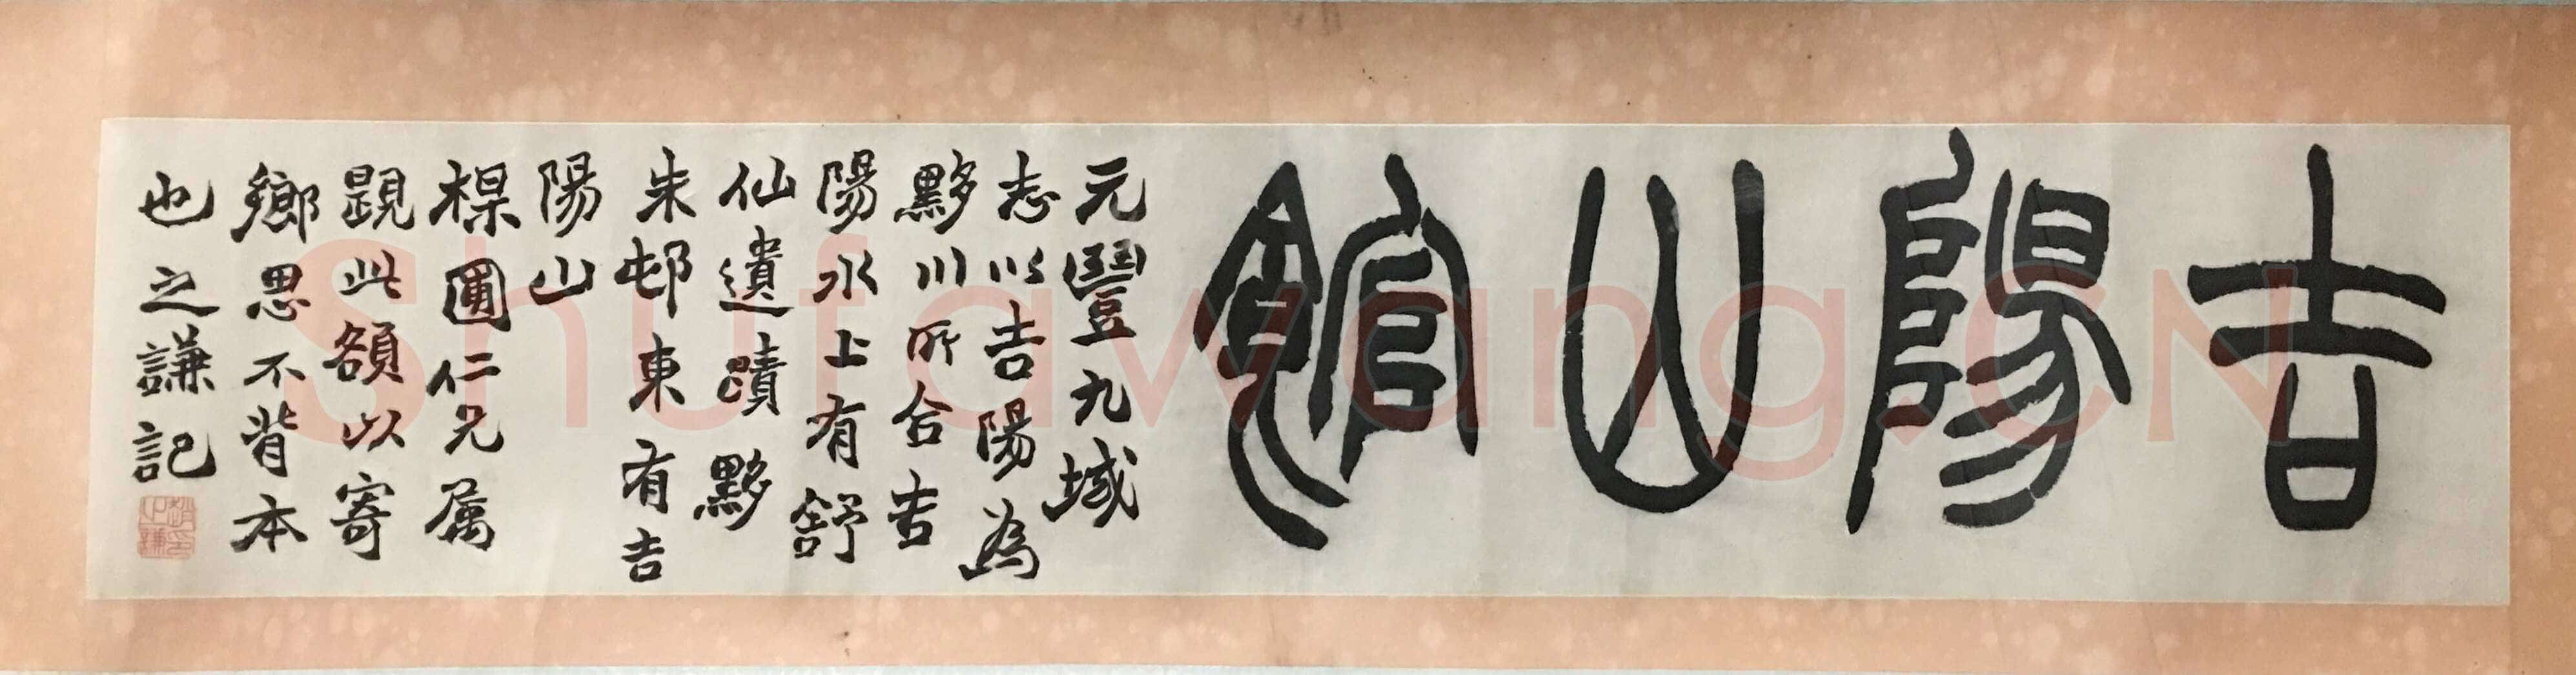 吉陽山館
元豐九域
志以吉陽為
黟川所合吉
陽水上有舒
仙遺蹟黟
朱邨東有吉
陽山
槼圃仁兄属
題此額以寄
鄉思不背本
也之謙記
趙之謙印
Shufawang.CN